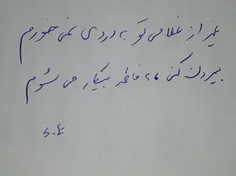 غیر از غلامی تو به دردی نمی خورم
بیرون کنی مرا بیکار می شوم
s.e